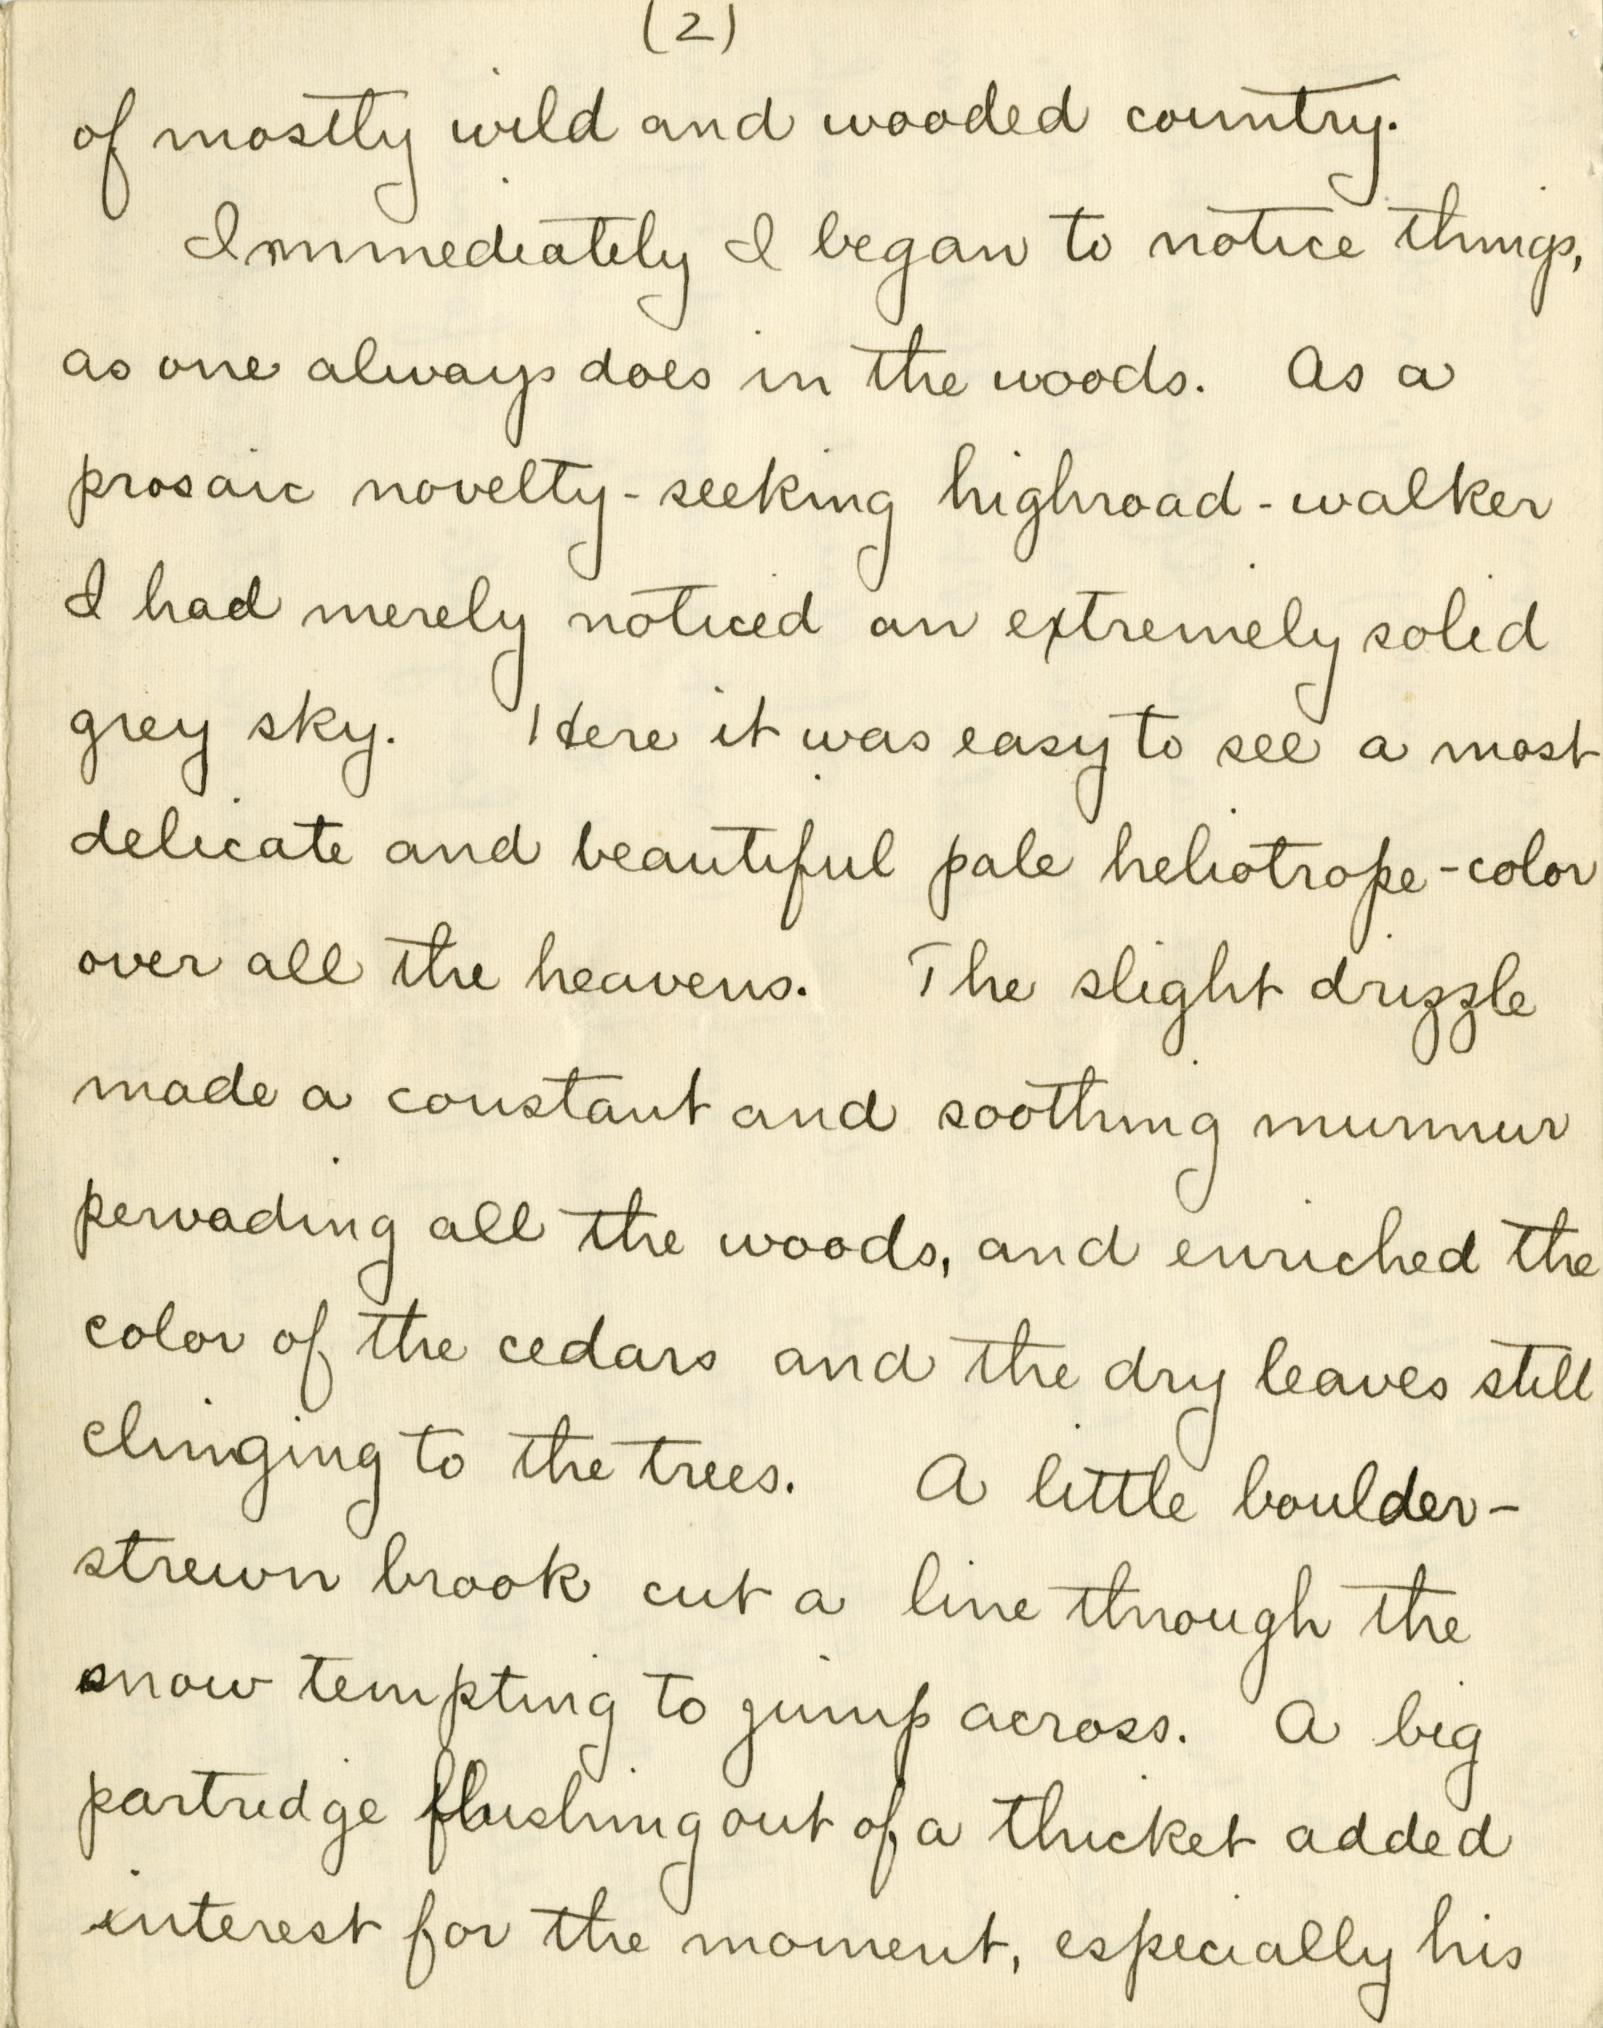 (2)
of mostly wild and wooded country.
Immediately I began to notice things,
as one always does in the woods. As a
prosaic novelty-seeking highroad-walker
I had merely noticed an extremely solid
grey sky. Here it was easy to see a most
delicate and beautiful pale heliotrope-color
over all the heavens. The slight drizzle
made a constant and soothing murmur
pervading all the woods, and enriched the
color of the cedars and the dry leaves still
clinging to the trees. A little boulder-
strewn brook cut a line through the
snow tempting to jump across. A big
partridge flushing out of a thicket added
interest for the moment, especially his